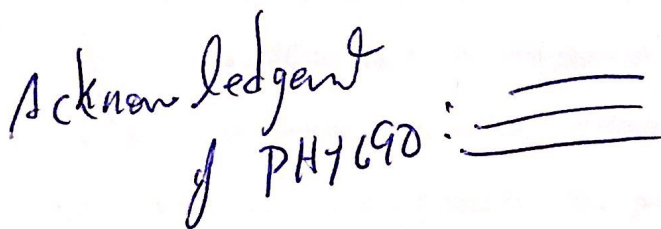 Acknowledgent
of PHY690: